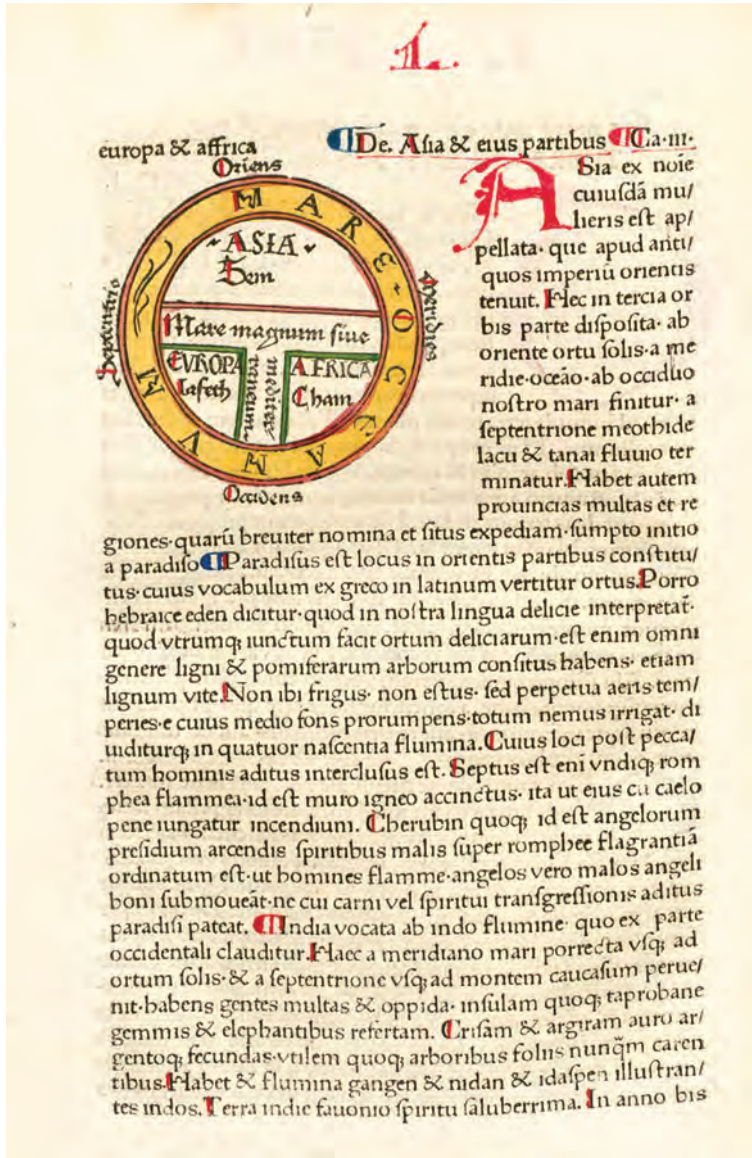 1.
europa & affrica
¶De. Aſia & eius partibus ¶Ca·iii·
Oriens
Septentrio
Meridies
Occidens
MARE·OCEANUM
ASIA
Sem
Mare magnum ſiue
mediterraneum
EVROPA
Iafeth
AFRICA
Cham
ASia ex noīe
cuiuſdā mu/
lieris eſt ap/
pellata· que apud anti/
quos imperiū orientis
tenuit. Hec in tercia or
bis parte diſpoſita· ab
oriente ortu ſolis·a me
ridie·oceāo·ab occiduo
noſtro mari finitur· a
ſeptentrione meothide
lacu & tanai fluuio ter
minatur. Habet autem
prouincias multas et re
giones·quarū breuiter nomina et ſitus expediam·ſumpto initio
a paradiſo ¶Paradiſus eſt locus in orientis partibus conſtitu/
tus·cuius vocabulum ex greco in latinum vertitur ortus. Porro
hebraice eden dicitur·quod in noſtra lingua delicie interpretat̄·
quod vtrumq; iunctum facit ortum deliciarum·eſt enim omni
genere ligni & pomiferarum arborum conſitus habens· etiam
lignum vite. Non ibi frigus· non eſtus· ſed perpetua aeris tem/
peries·e cuius medio fons prorumpens·totum nemus irrigat· di
uiditurq; in quatuor naſcentia flumina. Cuius loci poſt pecca/
tum hominis aditus intercluſus eſt. Septus eſt eni vndiq; rom
phea flammea·id eſt muro igneo accinctus· ita ut eius cū caelo
pene iungatur incendium. Cherubin quoq; id eſt angelorum
preſidium arcendis ſpiritibus malis ſuper romphee flagrantiā
ordinatum eſt·ut homines flamme·angelos vero malos angeli
boni ſubmoueāt·ne cui carni vel ſpiritui tranſgreſſionis aditus
paradiſi pateat. ¶India vocata ab indo flumine· quo ex parte
occidentali clauditur. Haec a meridiano mari porrecta vſq; ad
ortum ſolis·& a ſeptentrione vſq; ad montem caucaſum perue/
nit·habens gentes multas & oppida· inſulam quoq; taprobane
gemmis & elephantibus refertam. Criſam & argiram auro ar/
gentoq; fecundas·vtilem quoq; arboribus foliis nunq̄m caren
tibus. Habet & flumina gangen & nidan & idaſpen illuſtran/
tes indos. Terra indie fauonio ſpiritu ſaluberrima. In anno bis